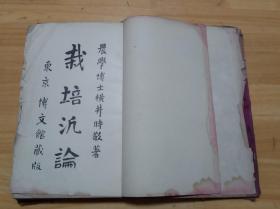 農學博士横井時敬著
栽培汎論
東京 博文館蔵版